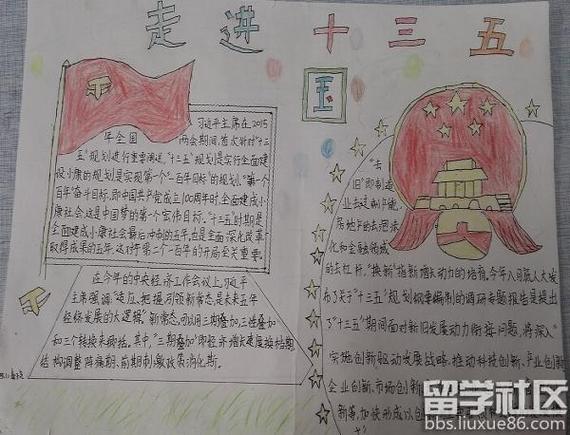 走进十三五
习近平主席在2015
年全国两会期间,首次针对"十三
五"规划进行重要阐述,"十三五"规划是实行全面建
设小康的规划是实现第一个"一百年目标"的规划。"第一个
百年"奋斗目标,即中国共产党成立100周年时,全面建成小
康社会这是中国梦的第一个宏伟目标。"十三五"时期是
全面建成小康社会最后冲刺的五年,也是全面深化改革
取得成果的五年,这对于第二个一百年的开局至关重要。
在今年的中央经济工作会议上,习近平
主席强调,"适应、把握、引领新常态是未来五年
经济发展的大逻辑。"新常态,可以用三期叠加,三性叠加
和三个转换来概括。其中,"三期叠加"即经济增长速度换挡期
结构调整阵痛期、前期刺激政策消化期。
"去
旧"即制造
业去过剩产能,
房地产的去泡沫
化和金融领域
的去杠杆。"换新"指新增长动力的培育,今年八月就人大发
布了关于"十三五"规划纲要编制的调研专题报告里提出
了"十三五"期间面对新旧发展动力衔接问题,将深入
实施创新驱动发展战略,推动科技创新、产业创新
企业创新、市场创新
新等,加快形成以创
留学社区
bbs.liuxue86.com